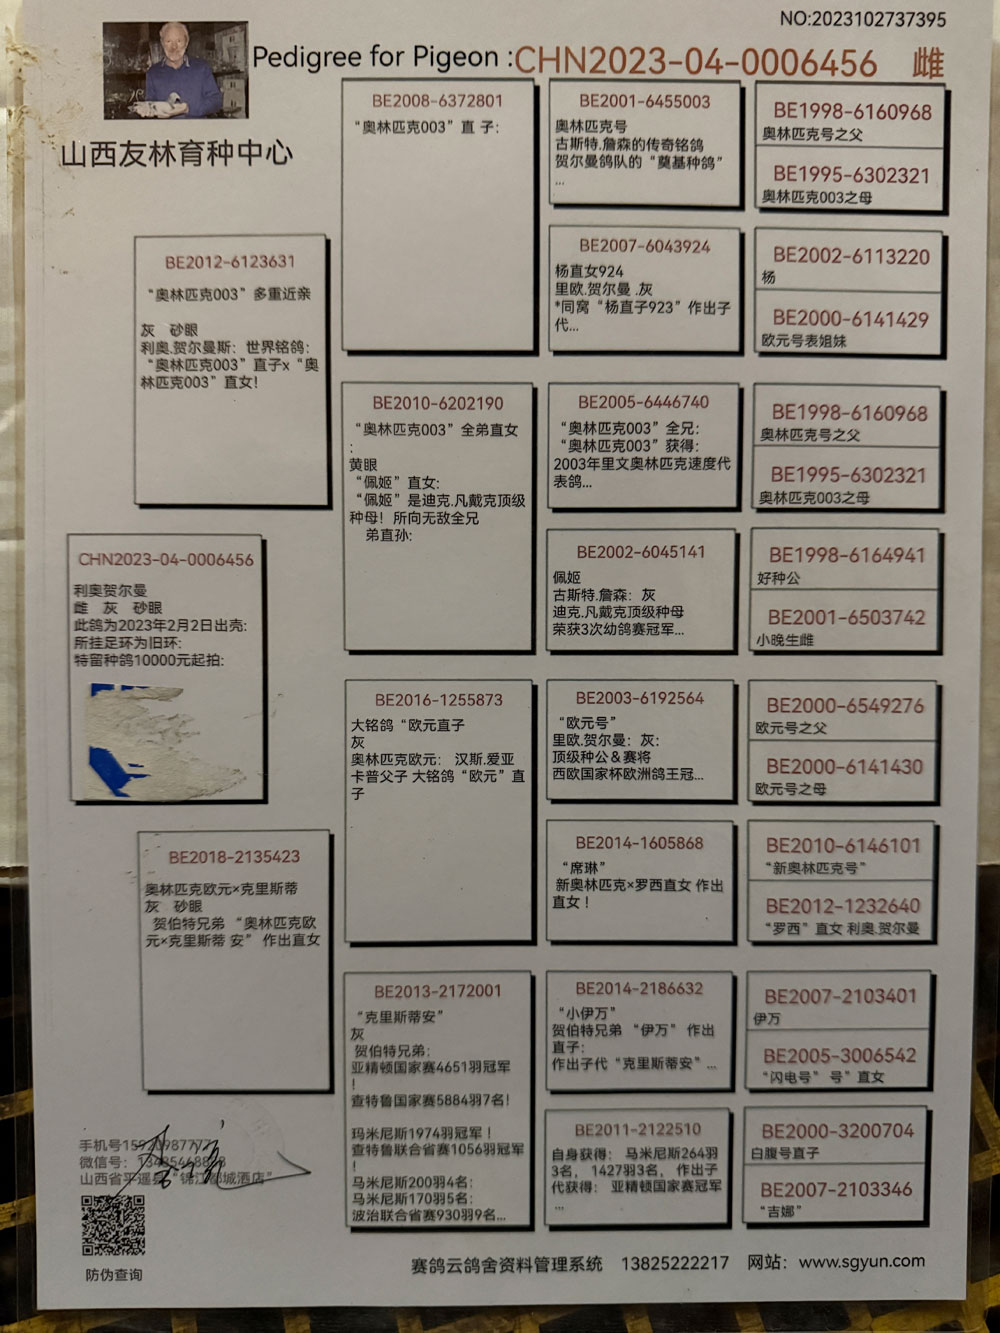 NO:2023102737395
Pedigree for Pigeon :CHN2023-04-0006456 雌
山西友林育种中心
CHN2023-04-0006456
利奥贺尔曼
雌 灰 砂眼
此鸽为2023年2月2日出壳:
所挂足环为旧环:
特留种鸽10000元起拍:
BE2012-6123631
“奥林匹克003”多重近亲
灰 砂眼
利奥.贺尔曼斯: 世界铭鸽:
“奥林匹克003”直子x“奥
林匹克003”直女!
BE2018-2135423
奥林匹克欧元×克里斯蒂
灰 砂眼
贺伯特兄弟 “奥林匹克欧
元×克里斯蒂 安” 作出直女
BE2008-6372801
“奥林匹克003”直 子:
BE2010-6202190
“奥林匹克003”全弟直女
:
黄眼
“佩姬”直女:
“佩姬”是迪克.凡戴克顶级
种母! 所向无敌全兄
弟直孙:
BE2016-1255873
大铭鸽“欧元直子
灰
奥林匹克欧元: 汉斯.爱亚
卡普父子 大铭鸽“欧元”直
子
BE2013-2172001
“克里斯蒂安”
灰
贺伯特兄弟:
亚精顿国家赛4651羽冠军
!
查特鲁国家赛5884羽7名!
玛米尼斯1974羽冠军!
查特鲁联合省赛1056羽冠军
!
马米尼斯200羽4名:
马米尼斯170羽5名:
波治联合省赛930羽9名...
BE2001-6455003
奥林匹克号
古斯特.詹森的传奇铭鸽
贺尔曼鸽队的“奠基种鸽”
...
BE2007-6043924
杨直女924
里欧.贺尔曼 .灰
*同窝“杨直子923”作出子
代...
BE2005-6446740
“奥林匹克003”全兄:
“奥林匹克003”获得:
2003年里文奥林匹克速度代
表鸽...
BE2002-6045141
佩姬
古斯特.詹森: 灰
迪克.凡戴克顶级种母
荣获3次幼鸽赛冠军...
BE2003-6192564
“欧元号”
里欧.贺尔曼: 灰:
顶级种公＆赛将
西欧国家杯欧洲鸽王冠...
BE2014-1605868
“席琳”
新奥林匹克×罗西直女 作出
直女!
BE2014-2186632
“小伊万”
贺伯特兄弟 “伊万” 作出
直子:
作出子代“克里斯蒂安”...
BE2011-2122510
自身获得: 马米尼斯264羽
3名, 1427羽3名, 作出子
代获得: 亚精顿国家赛冠军
...
BE1998-6160968
奥林匹克号之父
BE1995-6302321
奥林匹克003之母
BE2002-6113220
杨
BE2000-6141429
欧元号表姐妹
BE1998-6160968
奥林匹克号之父
BE1995-6302321
奥林匹克003之母
BE1998-6164941
好种公
BE2001-6503742
小晚生雌
BE2000-6549276
欧元号之父
BE2000-6141430
欧元号之母
BE2010-6146101
“新奥林匹克号”
BE2012-1232640
“罗西”直女 利奥.贺尔曼
BE2007-2103401
伊万
BE2005-3006542
“闪电号” 号”直女
BE2000-3200704
白腹号直子
BE2007-2103346
“吉娜”
手机号
微信号:
山西省平遥县“锦江都城酒店”
防伪查询
赛鸽云鸽舍资料管理系统 13825222217 网站: www.sgyun.com